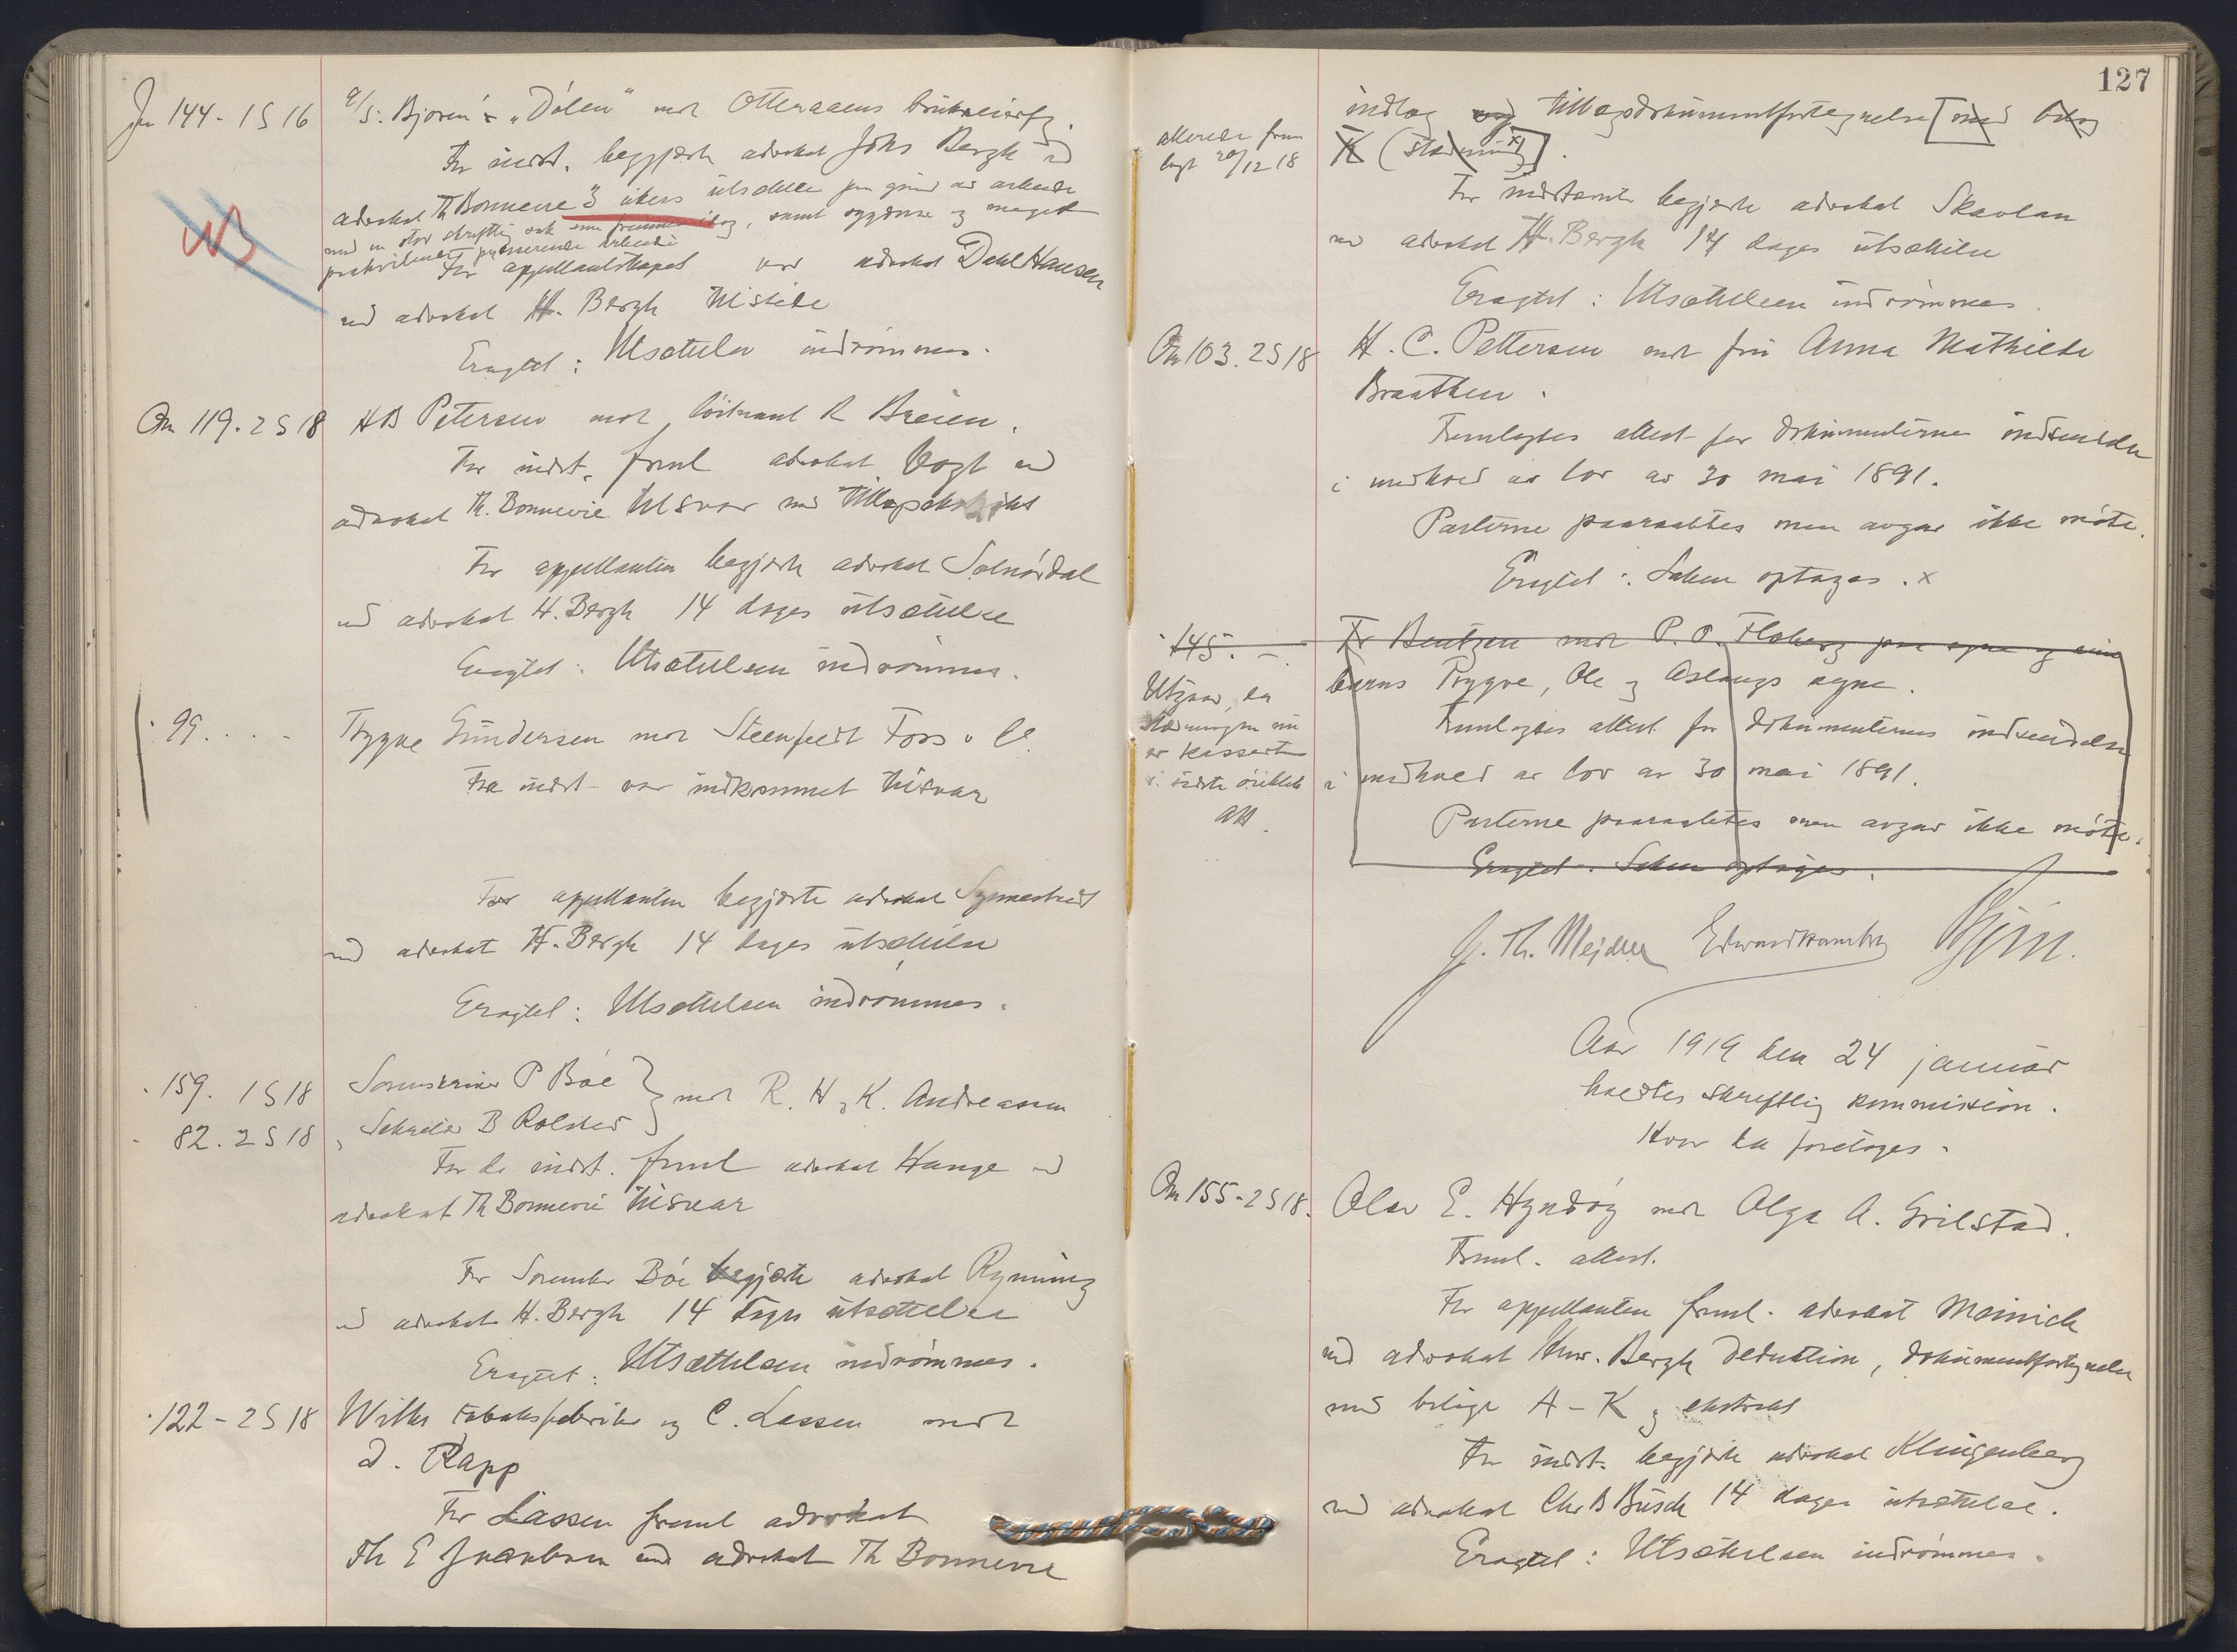 Jn 144 - 1 S 16
a/s. Bjoren's "Dölen" mot Otteraaens brukseierf.
For indst. begjærte advokat Johs Bergh ved
advokat Th Bonnevie 3 ukers utsættelse paa grund av arbeide
med en stor skriftlig sak som fremmes idag, samt sygdom og meget
presserende arbeide
For appellantskapet var advokat Dahl Hansen
ved advokat H. Bergh tilstede
Eragtet: Utsættelse indrømmes.
NB
On 119. 2 S 18
HB Petersen mot löitnant R Breien.
For indst. freml advokat Vogt ved
advokat Th. Bonnevie tilsvar med
For appellanten begjærte advokat Solnördal
ved advokat H. Bergh 14 dages utsættelse
Eragtet: Utsættelsen indrömmes.
99. . . . -
Trygve Gundersen mot Steenfeldt Foss & Co.
Fra indst - var indkommet tilsvar
For appellanten begjærte advokat Synnestvedt
ved advokat H. Bergh 14 dages utsættelse
Eragtet: Utsættelsen indrömmes.
159. 1 S 18
Sorenskriver P Böe
82. 2 S 18
B Rolsted } mot R. H. & K. Andreassen
For de indst. freml advokat Wange ved
advokat Th Bonnevie tilsvar
For Sorenskr Böe begjærte advokat Ryning
ved advokat H. Bergh 14 dages utsættelse
Eragtet: Utsættelsen indrömmes.
122 - 2 S 18
Wilhs tobaksfabrikk og C. Lassen mot
D. Rapp
For Lassen freml advokat
Th E ved advokat Th Bonnevie
127
allerede frem
lagt 20/12 18
indlæg og tillægsdokumentfortegnelse [med bilag
K (stævning x)].
For indstevnte begjærte advokat Skavlan
ved advokat H. Bergh 14 dages utsættelse
Eragtet: Utsættelsen indrømmes.
On 103. 2 S 18
H. C. Pettersen mot fru Anna Mathilde
Braathen.
Fremlagdes attest for dokumenternes indsendelse
i medhold av lov av 30 mai 1891.
Parterne paaraabtes men avgav ikke møte.
Eragtet: Saken optages. x
145. -
Fr Bentzen mot P. O. Floberg paa egne og sine
barns Trygve, Ole og Aslaugs vegne.
Utgaar, da
stævningen nu
er kassert
i sidste öieblik
AH.
Fremlagdes attest for dokumenternes indsendelse
i medhold av lov av 30 mai 1891.
Parterne paaraabtes men avgav ikke möte.
Eragtet: Saken optages.
J. Th. Mejdell Edvard Hambro
Aar 1919 den 24 januar
holdtes skriftlig kommission.
Hvor da foretoges.
On 155 - 2 S 18.
Olav E. Hyndöy mot Olga A. Grilstad.
Freml. attest.
For appellanten freml. advokat Meinich
ved advokat Hmr. Bergh deduktion, dokumentfortegnelse
med bilage A - K og ekstrakt
For indst. begjærte advokat Klingenberg
ved advokat Chr B Busch 14 dages utsættelse.
Eragtet: Utsættelsen indrömmes.